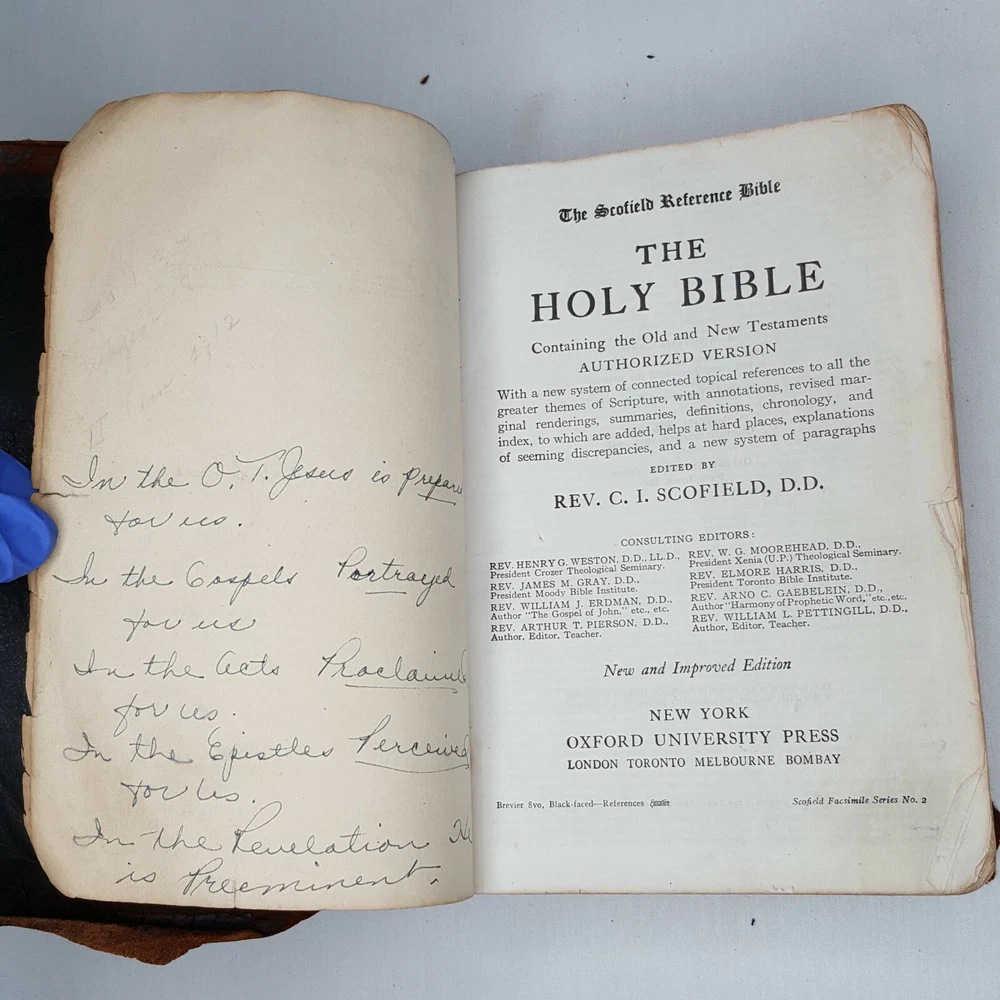 In the O. T. Jesus is prepare
for us.
In the Gospels Portrayed
for us
In the Acts Proclaimed
for us.
In the Epistles Perceived
for Us.
In the Revelation He
is Preeminent.
The Scofield Reference Bible
THE
HOLY BIBLE
Containing the Old and New Testaments
AUTHORIZED VERSION
With a new system of connected topical references to all the
greater themes of Scripture, with annotations, revised mar-
ginal renderings, summaries, definitions, chronology, and
index, to which are added, helps at hard places, explanations
of seeming discrepancies, and a new system of paragraphs
EDITED BY
REV. C. I. SCOFIELD, D.D.
CONSULTING EDITORS:
REV. HENRY G. WESTON, D.D., LL.D.,
President Crozer Theological Seminary.
REV. JAMES M. GRAY, D.D.,
President Moody Bible Institute.
REV. WILLIAM J. ERDMAN, D.D.,
Author "The Gospel of John," etc., etc.
REV. ARTHUR T. PIERSON, D.D.,
Author, Editor, Teacher.
REV. W. G. MOOREHEAD, D.D.,
President Xenia (U.P.) Theological Seminary.
REV. ELMORE HARRIS, D.D.,
President Toronto Bible Institute.
REV. ARNO C. GAEBELEIN, D.D.,
Author "Harmony of Prophetic Word," etc., etc.
REV. WILLIAM L. PETTINGILL, D.D.,
Author, Editor, Teacher.
New and Improved Edition
NEW YORK
OXFORD UNIVERSITY PRESS
LONDON TORONTO MELBOURNE BOMBAY
Brevier 8vo, Black-faced—References
Scofield Facsimile Series No. 2